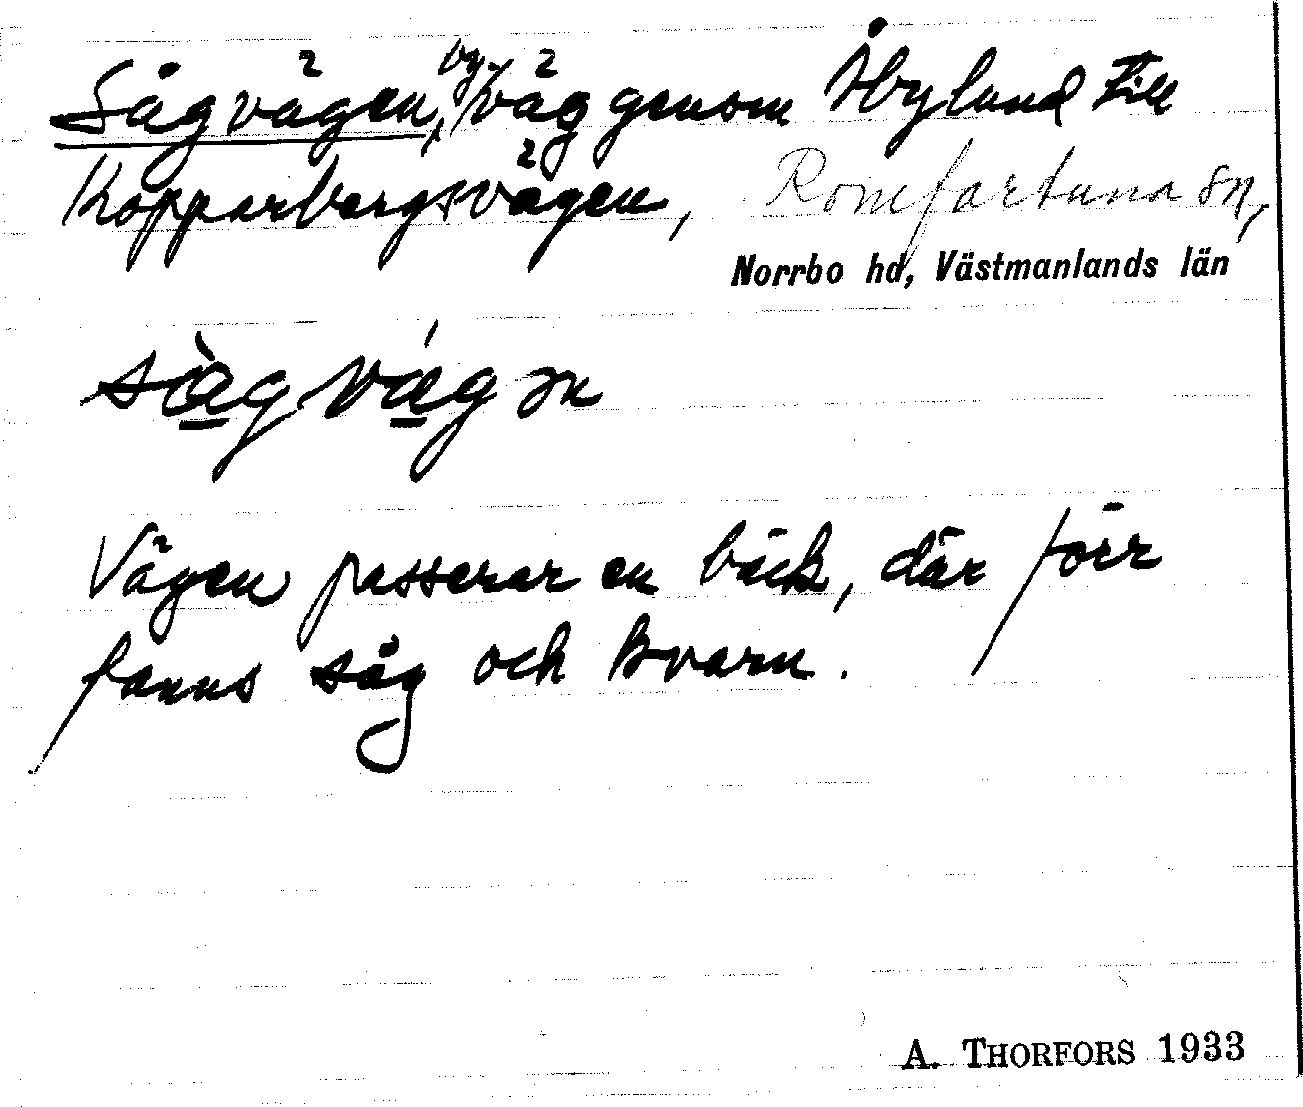 Sågvägen, by-väg genom Åbylund till
Kopparbergsvägen, Romfartuna sn,
Norrbo hd, Västmanlands län
sàgvǽgən
Vägen passerar en bäck, där förr
fanns såg och kvarn.
A. THORFORS 1933